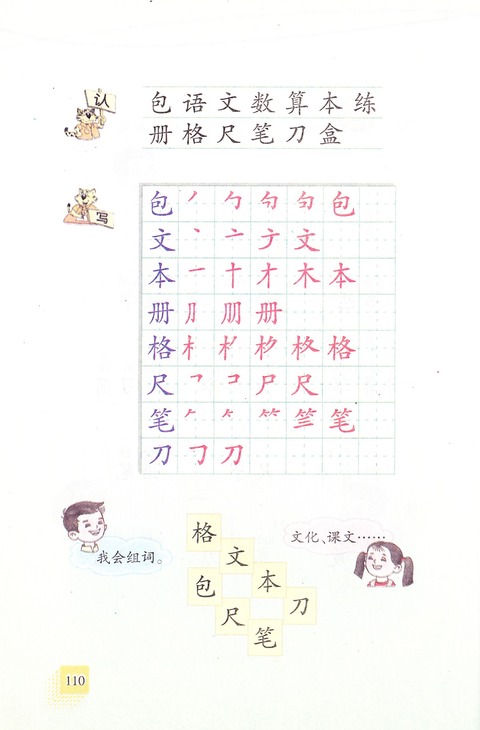 认
包语文数算本练
册格尺笔刀盒
写
包 ノ 勹 勺 匀 包
文 丶 亠 ナ 文
本 一 十 才 木 本
册 刂 朋 册
格 木 朩 杦 格
尺 𠃍 コ 尸 尺
笔 𠂉 𠂉 竹 竺 笔
刀 𠃌 刀
我会组词。
文化、课文……
格
文
包
本
尺
刀
笔
110